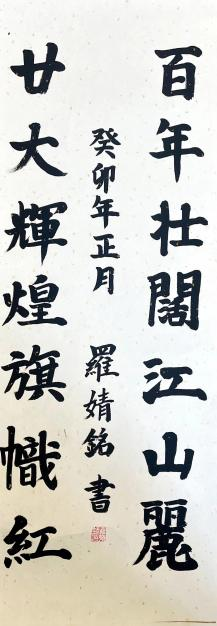 百年壮闊江山麗
廿大輝煌旗幟紅
癸卯年正月 羅婧銘 書